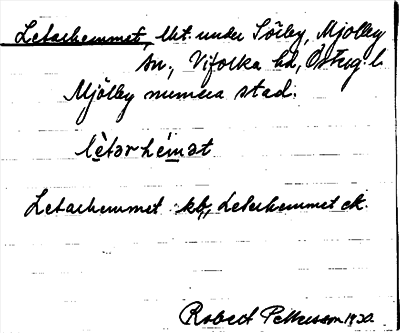 Letarhemmet, lht. under Sörby, Mjölby
sn., Vifolka hd, Östergl. l.
Mjölby numera stad.
lètərhémət
Letarhemmet kb, Leterhemmet ek.
Robert Pettersson 1930.